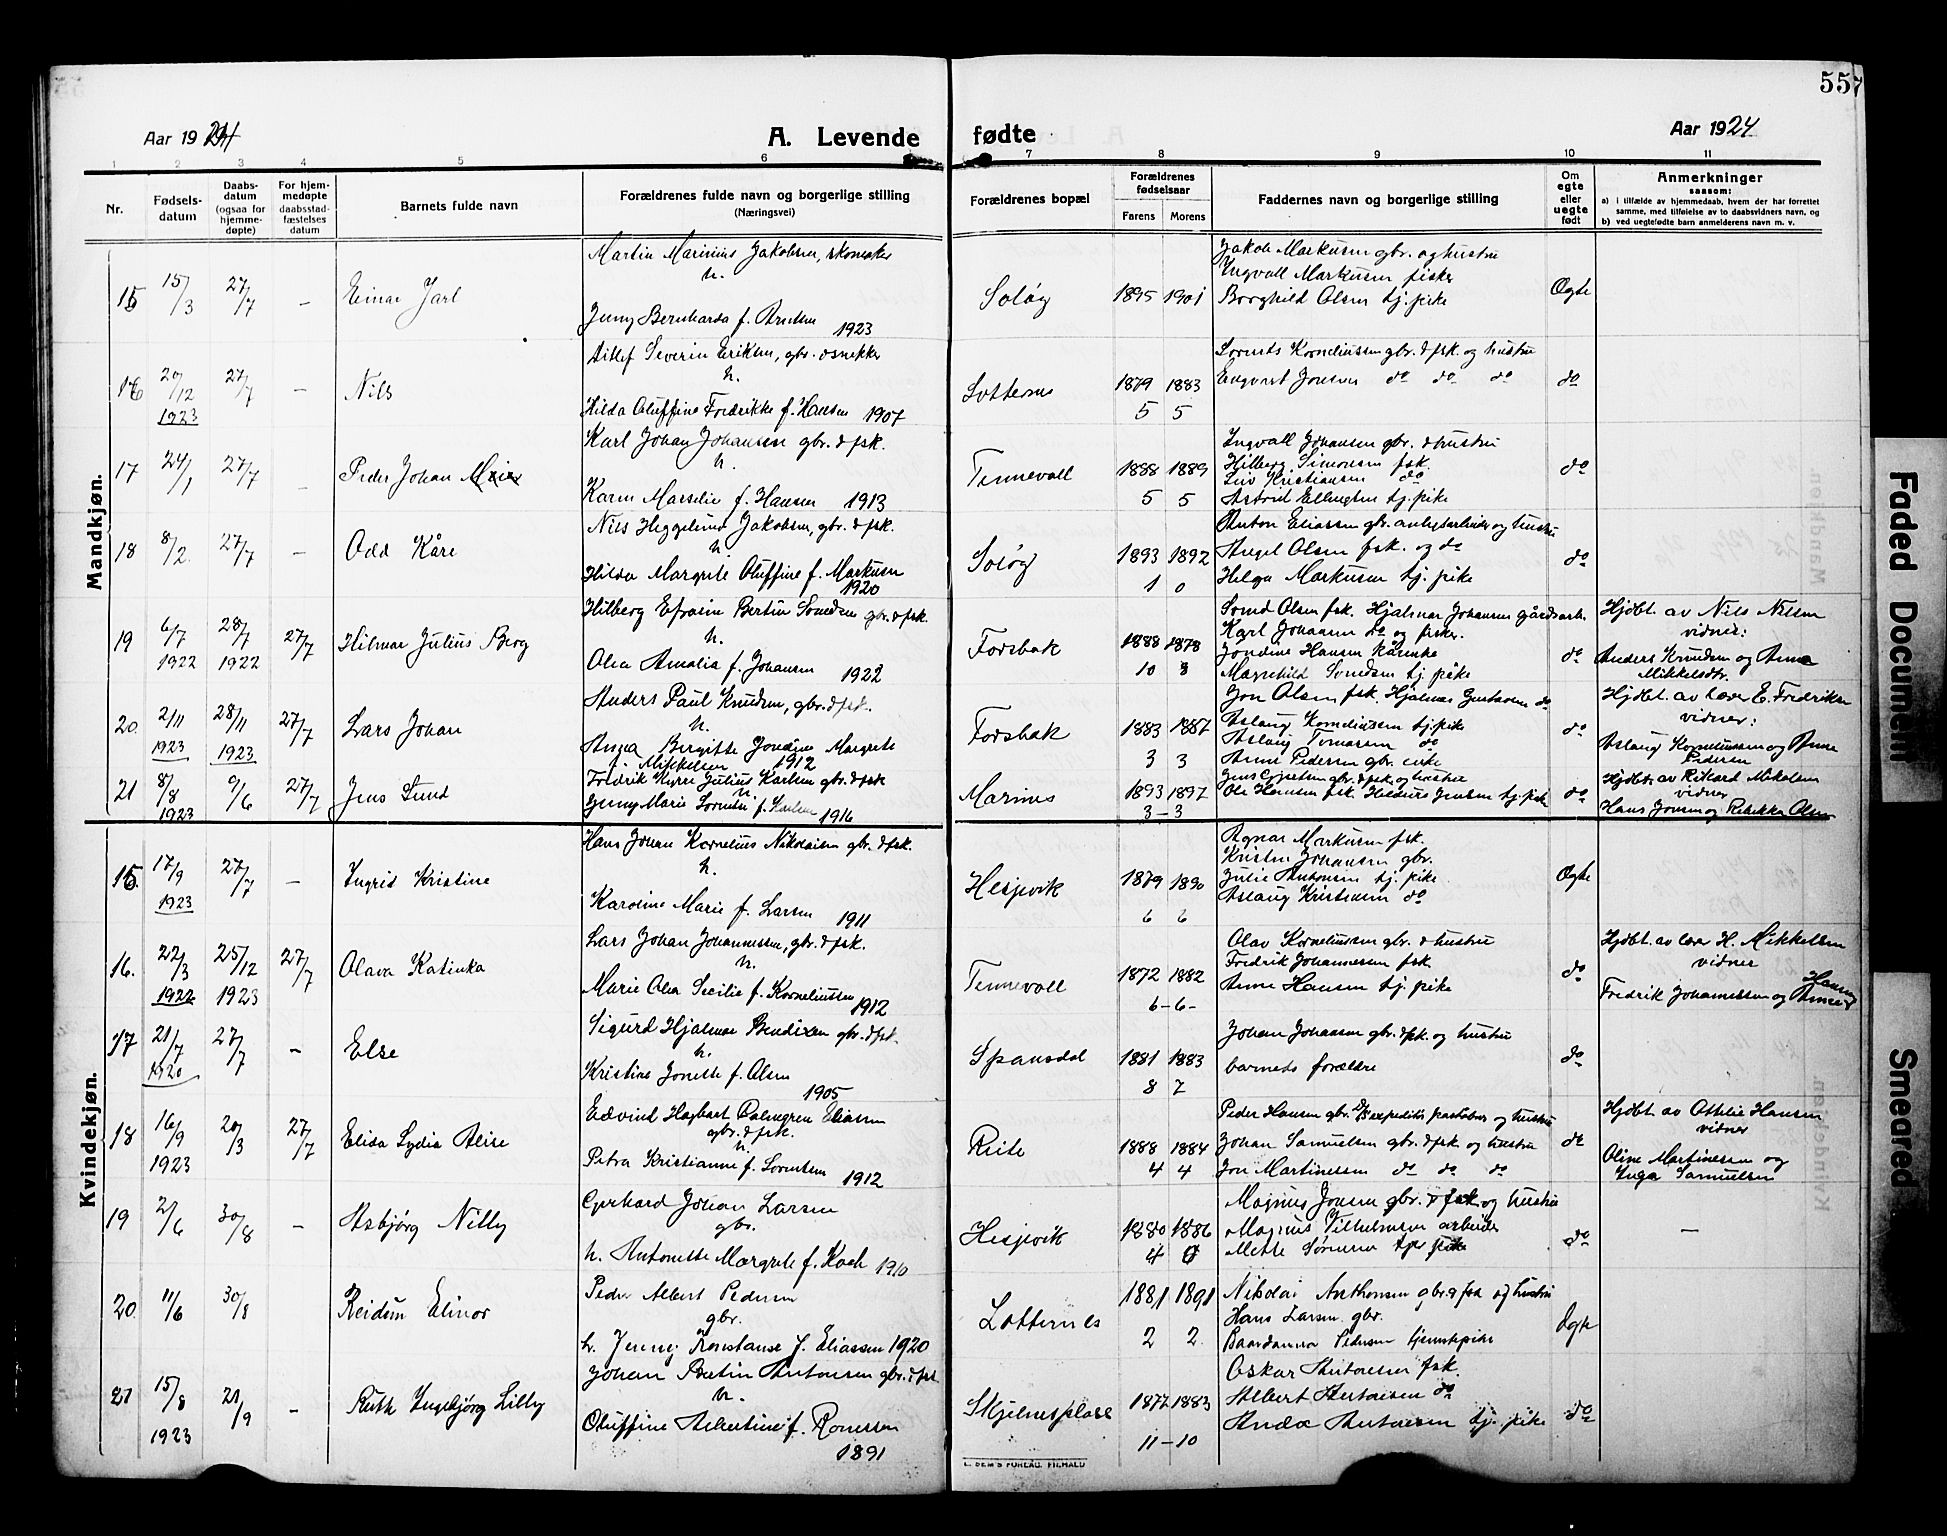 557
Aar 1924
A. Levende fødte
Aar 1924
1 2 3 4 5 6 7 8 9 10 11
Nr.
Fødsels-
datum
Daabs-
datum
(ogsaa for
hjemme-
døpte)
For hjem-
medøpte
daabsstad-
fæstelses
datum
Barnets fulde navn
Forældrenes fulde navn og borgerlige stilling
(Næringsvei)
Forældrenes bopæl
Forældrenes
fødselsaar
Farens Morens
Faddernes navn og borgerlige stilling
Om
egte
eller
uegte
født
Anmerkninger
saasom:
a) i tilfælde av hjemmedaab, hvem der har forrettet
samme, med tilføielse av to daabsvidners navn, og
b) ved uegtefødte barn anmelderens navn m. v.
Mandkjøn.
15 15/3 27/7 – Einar Jarl
Martin Marinius Jakobsen, skomaker
h.
Jenny Bernharda f. 1923
Soløy 1895 1901
Jakob Markussen gbr. og hustru
Ingvall Markussen fisker
Borghild Olsen tj. pike
Ægte
16 20/12 1923 27/7 – Nils
Ditlef Severin Eriksen, gbr. & snekker
h.
Hilda Oluffine Fredrikke f. Hansen 1907
1879 1883
5 5
Korneliussen gbr. & fsk. og hustru
Jensen do do do
do
17 24/1 27/7 – Peder Johan
Karl Johan Johansen gbr. & fsk.
h.
Karen Marselie f. Hansen 1913
Tennevoll 1888 1889
5 5
Ingvall Johansen gbr. & hustru
Hilberg Simonsen fsk.
Kristiansen do
Astrid Ellingsen tj. pike
do
18 8/2 27/7 – Odd Kåre
Nils Heggelund Jakobsen, gbr. & fsk.
h.
Hilda Margrete Oluffine f. Markusen
1920
Soløy 1893 1892
1 0
Anton Eliassen gbr. og hustru
Angel Olsen fsk. og do
Helga Markusen tj. pike
do
19 6/7 1922 28/7 1922 27/7 Hilmar Julius Berg
Hilberg Efraim Bertin gbr. & fsk.
h.
Olea Amalia f. Johansen 1922
Forsbak 1888 1878
10 8
Olsen fsk. Hjalmar Johansen gårdsarb.
Karl Johansen do og fisker.
Jondine Hansen
Magnhild tj. pike
do
Hjdbt. av Nils Nilsen
vidner:
Anders Knudsen og Anna
Mikkelsdtr.
20. 2/11 1923 28/11 1923 27/7 Lars Johan
Anders Paul Knudsen, gbr. & fsk.
h.
Anna Birgitte Jondine Margrete
f. Mikkelsen 1912
Forsbak 1883 1887
3 3
Jon Olsen fsk. Hjalmar do
Aslaug Korneliussen tj. pike
Aslaug Tomassen do
Anne Pedersen gbr. enke
do
Hjdbt. av lærer E. Fredriksen
vidner:
Aslaug Korneliussen og Anne
Pedersen
21 8/8 1923 9/6 27/7 Jens Lund
Fredrik Julius Karlsen gbr. & fsk
h.
Jenny Marie f. 1916
Marines 1893 1897
3 – 3
gbr. & fsk og hustru
Ole Hansen fsk. Jensen tj. pike
do
Hjdbt. av Rikard Mikalsen
vidner
Hans Jensen og Rebekka Olsen
Kvindekjøn.
15. 17/9 1923 27/7 – Ingrid Kristine
Hans Johan Kornelius Nikolaisen gbr. & fsk.
h.
Karoline Marie f. Larsen 1911
Hesjevik 1879 1890
6 6
Agnar Markussen fsk.
Kristen Johansen gbr.
Julie Antonsen tj. pike
Aslaug Kristensen do
Ægte
16. 22/3 1922 25/12 1923 27/7 Olava Katinka
Lars Johan Johannessen, gbr. & fsk.
h.
Marie Olea Secilie f. Korneliussen
1912
Tennevoll 1872 1882
6 – 6 –
Olav Korneliussen gbr. & hustru
Fredrik Johannessen fsk.
Anne Hansen tj. pike
do
Hjdbt. av lærer H. Mikkelsen
vidner
Fredrik Johannessen og Anne Hansen
17 21/7 1920 27/7 – Else
Sigurd Hjalmar Bendixen gbr. & fsk.
h.
Kristine Jonette f. Olsen
1905
Spansdal 1881 1883
8 7
Johan Johansen gbr. & fsk. og hustru
barnets forældre
do
18 16/9 1923 20/3 27/7 Elida Lydia Alise
Edvind Hagbart Palmgren Eliassen
gbr. & fsk.
h.
Petra Kristianne f. Lorentsen
1912
1888 1884
4 4
Peder Hansen gbr. og hustru
Johan Samuelsen gbr. & fsk og hustru
Jon Martinessen do do do
do
Hjdbt av Ottilie Hansen
vidner
Oline Martinessen og
Inga Samuelsen
19 2/6 30/8 – Asbjørg Nilly
Gerhard Johan Larsen
gbr.
h. Antonette Margrete f. Koch 1910
Hesjevik 1880 1886
4 0
Magnus Jensen gbr. & fsk og hustru
Magnus Vilhelmsen arbeider
Mette Sørensen tj. pike
do –
20. 11/6 30/8 Reidun Elinor
Peder Albert Pedersen
gbr.
h. Jenny Konstanse f. Eliassen 1920
Lotternes 1881 1891
2 2.
Nikolai Anthonsen gbr & fsk og hustru
Hans Larsen gbr.
Pedersen tjenestepike
Ægte
21 15/8 1923 21/9 – Ruth Ingebjørg Lilly
Johan Bertin Antonsen gbr. & fsk
h.
Oluffine Albertine f.
1891
Skjelnesplass 1872 1883
11 – 10
Oskar Antonsen fsk.
Albert Antonsen do
Anda Antonsen tj. pike
do
L. SEM'S FORLAG. FR.HALD
Faded Document
Smeared